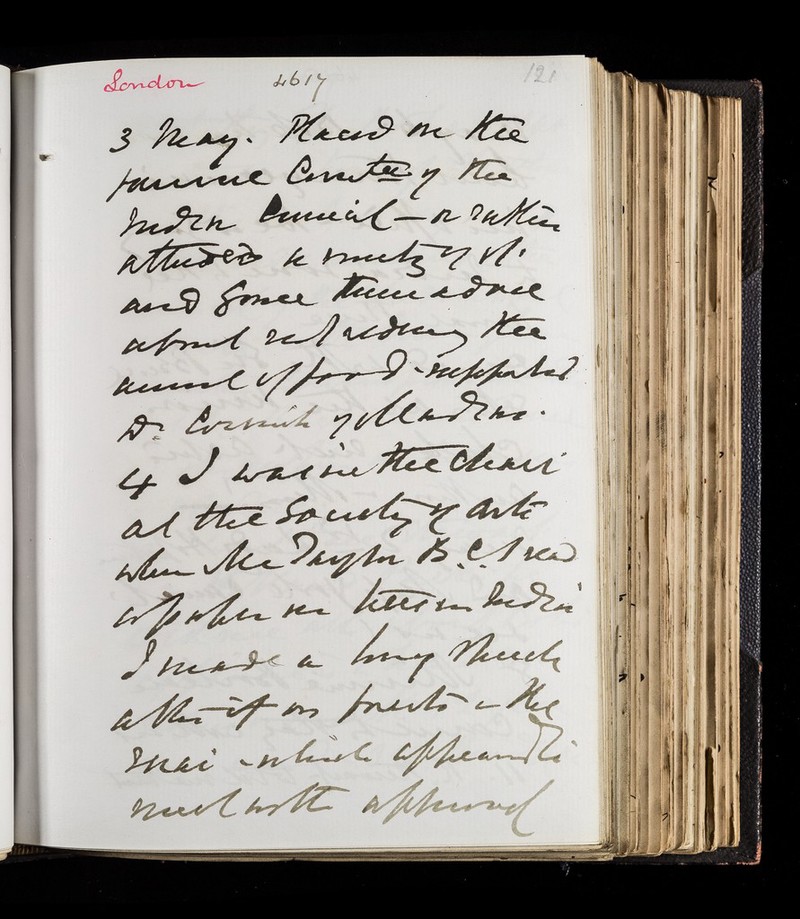 London 4617 121
3 May. Placed on the
famine Comtee of the
Indian Council – or rather
attended a meeting of it.
and gave them advice
about reducing the
amount of food – supported
Dr Cornish of Madras.
4 I was in the Chair
at the Society of Arts
when Mr Taylor B.C.S read
a paper on trees in India
I made a long speech
after it on forests in the
which appeared to
meet with approval